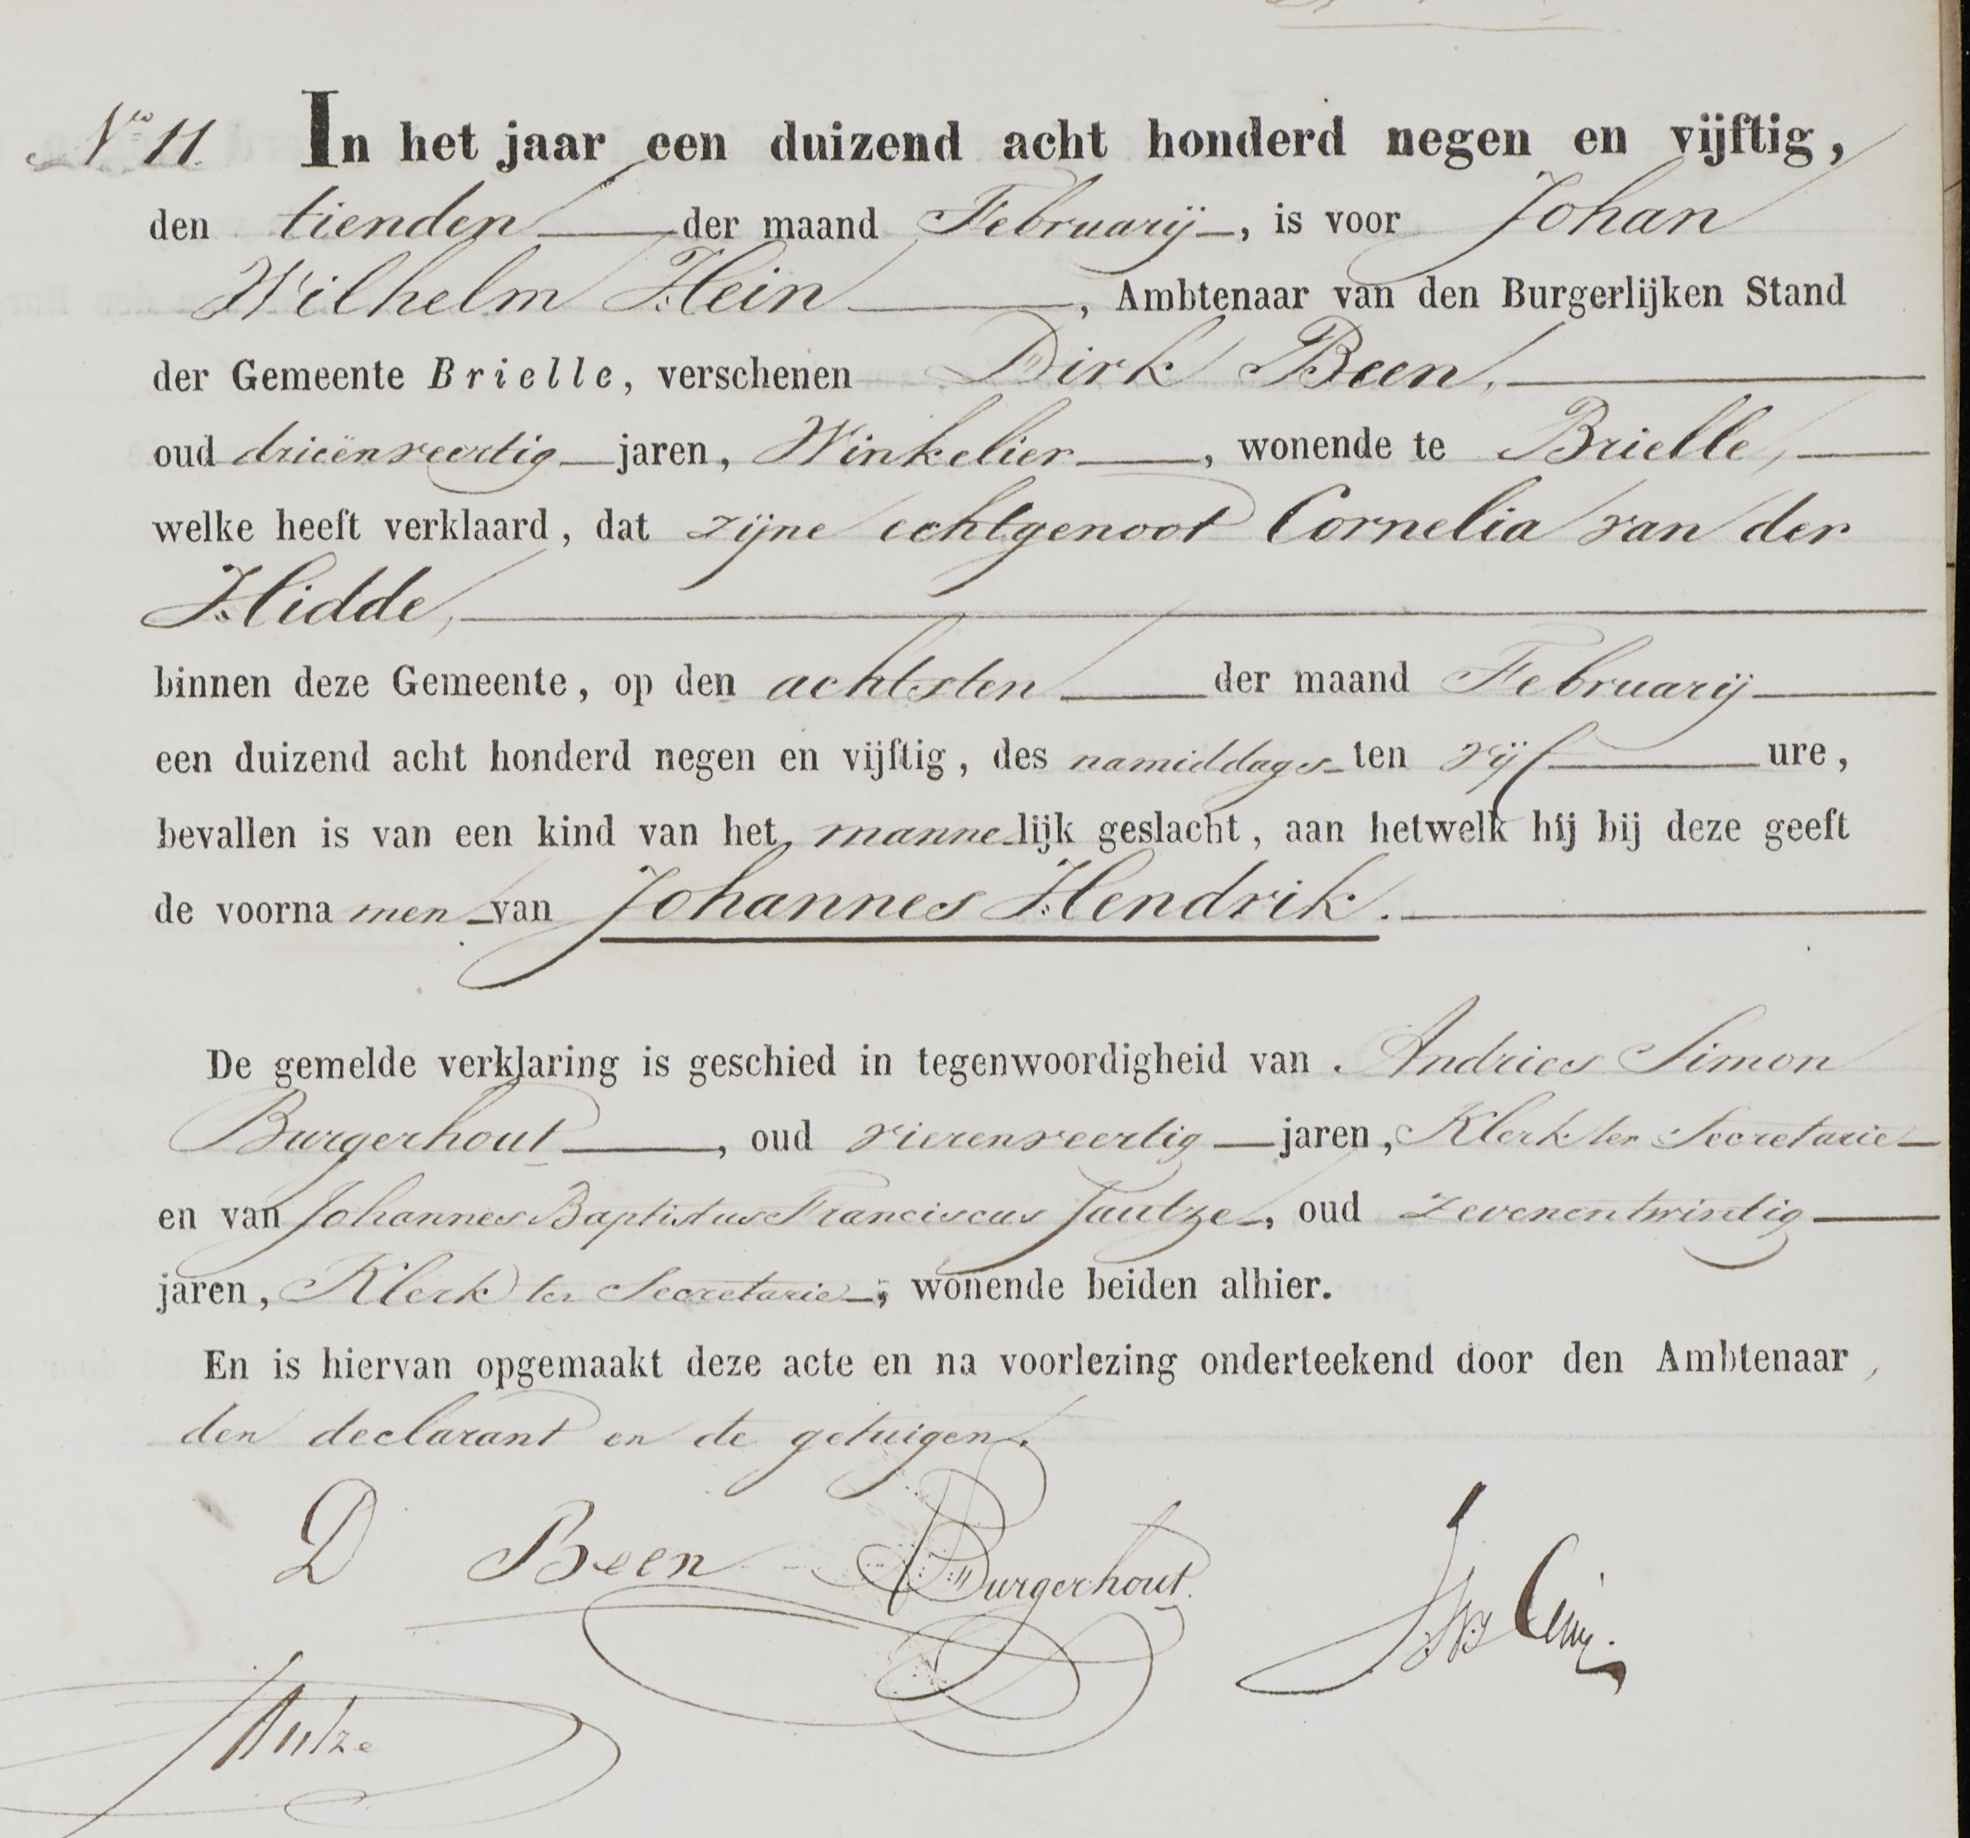 No 11. In het jaar een duizend acht honderd negen en vijftig,
den tienden der maand Februarij, is voor Johan
Wilhelm Hein, Ambtenaar van den Burgerlijken Stand
der Gemeente Brielle, verschenen Dirk Been,
oud drieënveertig jaren, Winkelier, wonende te Brielle,
welke heeft verklaard, dat zijne echtgenoot Cornelia van der
Hidde,
binnen deze Gemeente, op den achtsten der maand Februarij
een duizend acht honderd negen en vijftig, des namiddags ten vijf ure,
bevallen is van een kind van het mannelijk geslacht, aan hetwelk hij bij deze geeft
de voornamen van Johannes Hendrik.
De gemelde verklaring is geschied in tegenwoordigheid van Andries Simon
Burgerhout, oud vierenveertig jaren, Klerk ter Secretarie
en van Johannes Baptistus Franciscus Jautze, oud zevenentwintig
jaren, Klerk ter Secretarie, wonende beiden alhier.
En is hiervan opgemaakt deze acte en na voorlezing onderteekend door den Ambtenaar,
den declarant en de getuigen.
D Been Burgerhout
Jautze